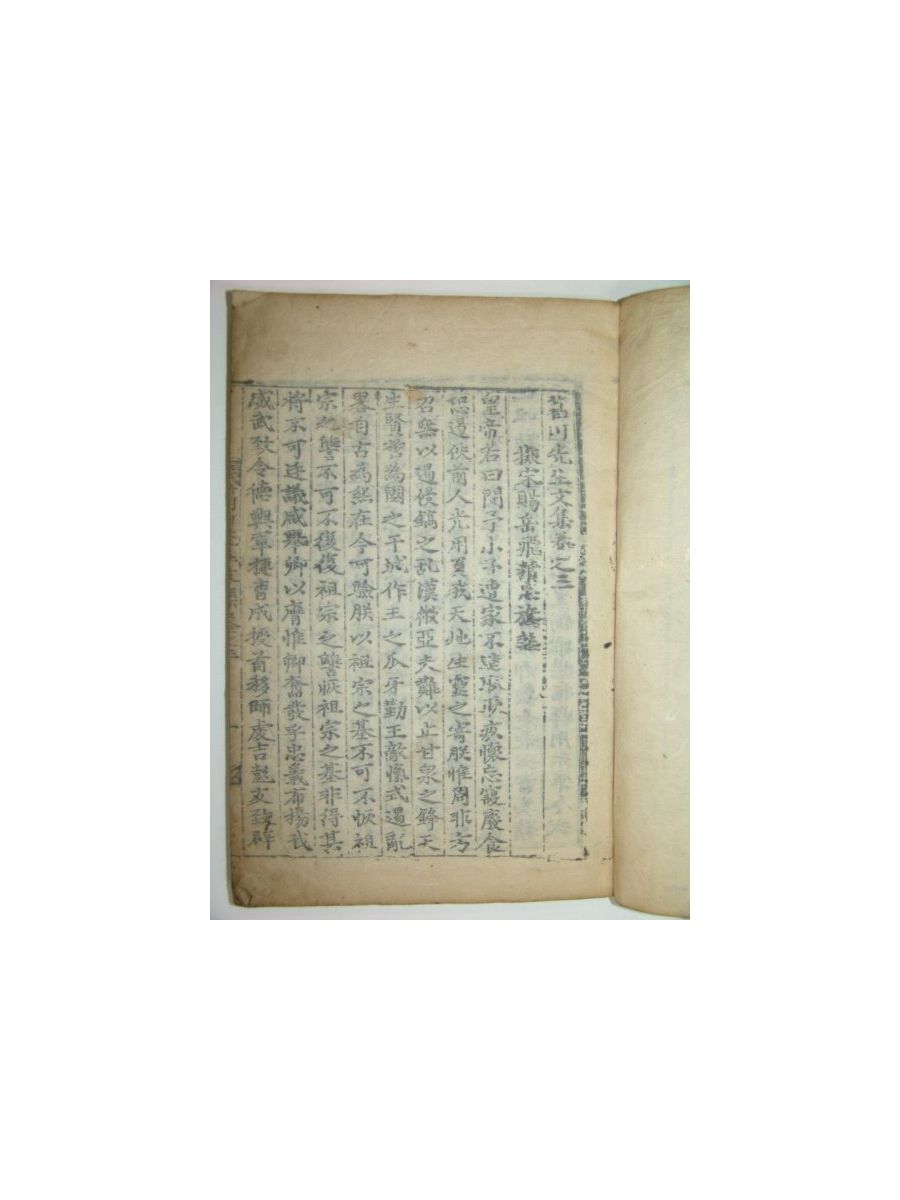 川先生文集卷之三
擬宋賜岳飛精忠旗
皇帝若曰閔予小子遭家不造夙夜疚懷忘寢廢食
恐遏佚前人光用亙我天地生靈之寄朕惟周非方
召無以遏侵鎬之亂漢微亞夫難以止甘泉之鋒天
生賢 爲國之干城作王之爪牙勤王敵愾式遏亂
畧自古爲然在今可驗朕以祖宗之基不可不恢祖
宗之讐不可不復復祖宗之讐恢祖宗之基非得其
將不可廷議咸擧卿以膺惟卿奮發乎忠義布揚我
威武致令德興 成授首移師處吉彭友 群